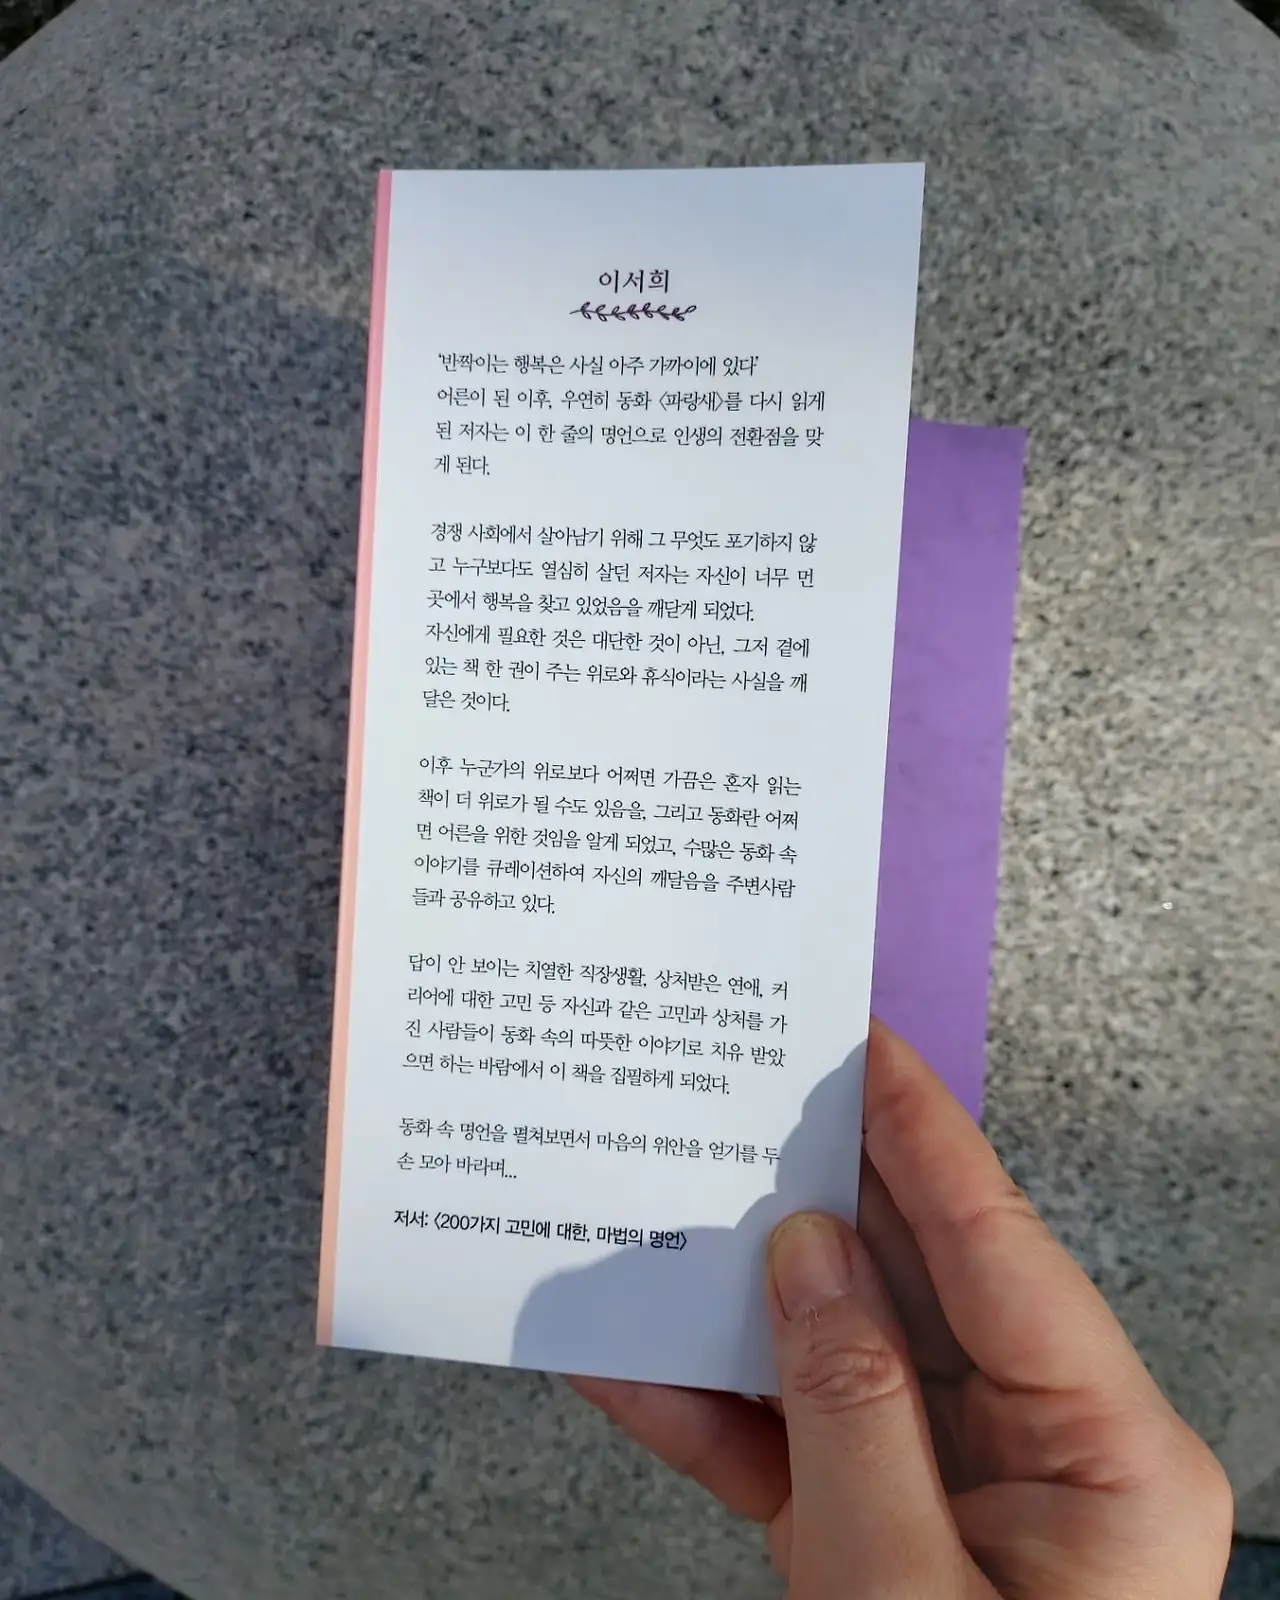 이서희
'반짝이는 행복은 사실 아주 가까이에 있다'
어른이 된 이후, 우연히 동화 〈파랑새〉를 다시 읽게
된 저자는 이 한 줄의 명언으로 인생의 전환점을 맞
게 된다.
경쟁 사회에서 살아남기 위해 그 무엇도 포기하지 않
고 누구보다도 열심히 살던 저자는 자신이 너무 먼
곳에서 행복을 찾고 있었음을 깨닫게 되었다.
자신에게 필요한 것은 대단한 것이 아닌, 그저 곁에
있는 책 한 권이 주는 위로와 휴식이라는 사실을 깨
달은 것이다.
이후 누군가의 위로보다 어쩌면 가끔은 혼자 읽는
책이 더 위로가 될 수도 있음을, 그리고 동화란 어쩌
면 어른을 위한 것임을 알게 되었고, 수많은 동화 속
이야기를 큐레이션하여 자신의 깨달음을 주변사람
들과 공유하고 있다.
답이 안 보이는 치열한 직장생활, 상처받은 연애, 커
리어에 대한 고민 등 자신과 같은 고민과 상처를 가
진 사람들이 동화 속의 따뜻한 이야기로 치유 받았
으면 하는 바람에서 이 책을 집필하게 되었다.
동화 속 명언을 펼쳐보면서 마음의 위안을 얻기를 두
손 모아 바라며...
저서: 〈200가지 고민에 대한, 마법의 명언〉